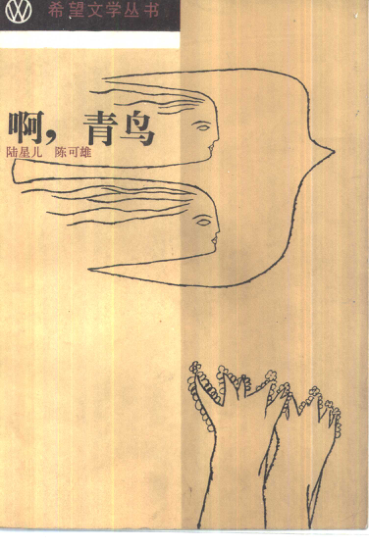 希望文学丛书
啊，青鸟
陆星儿 陈可雄